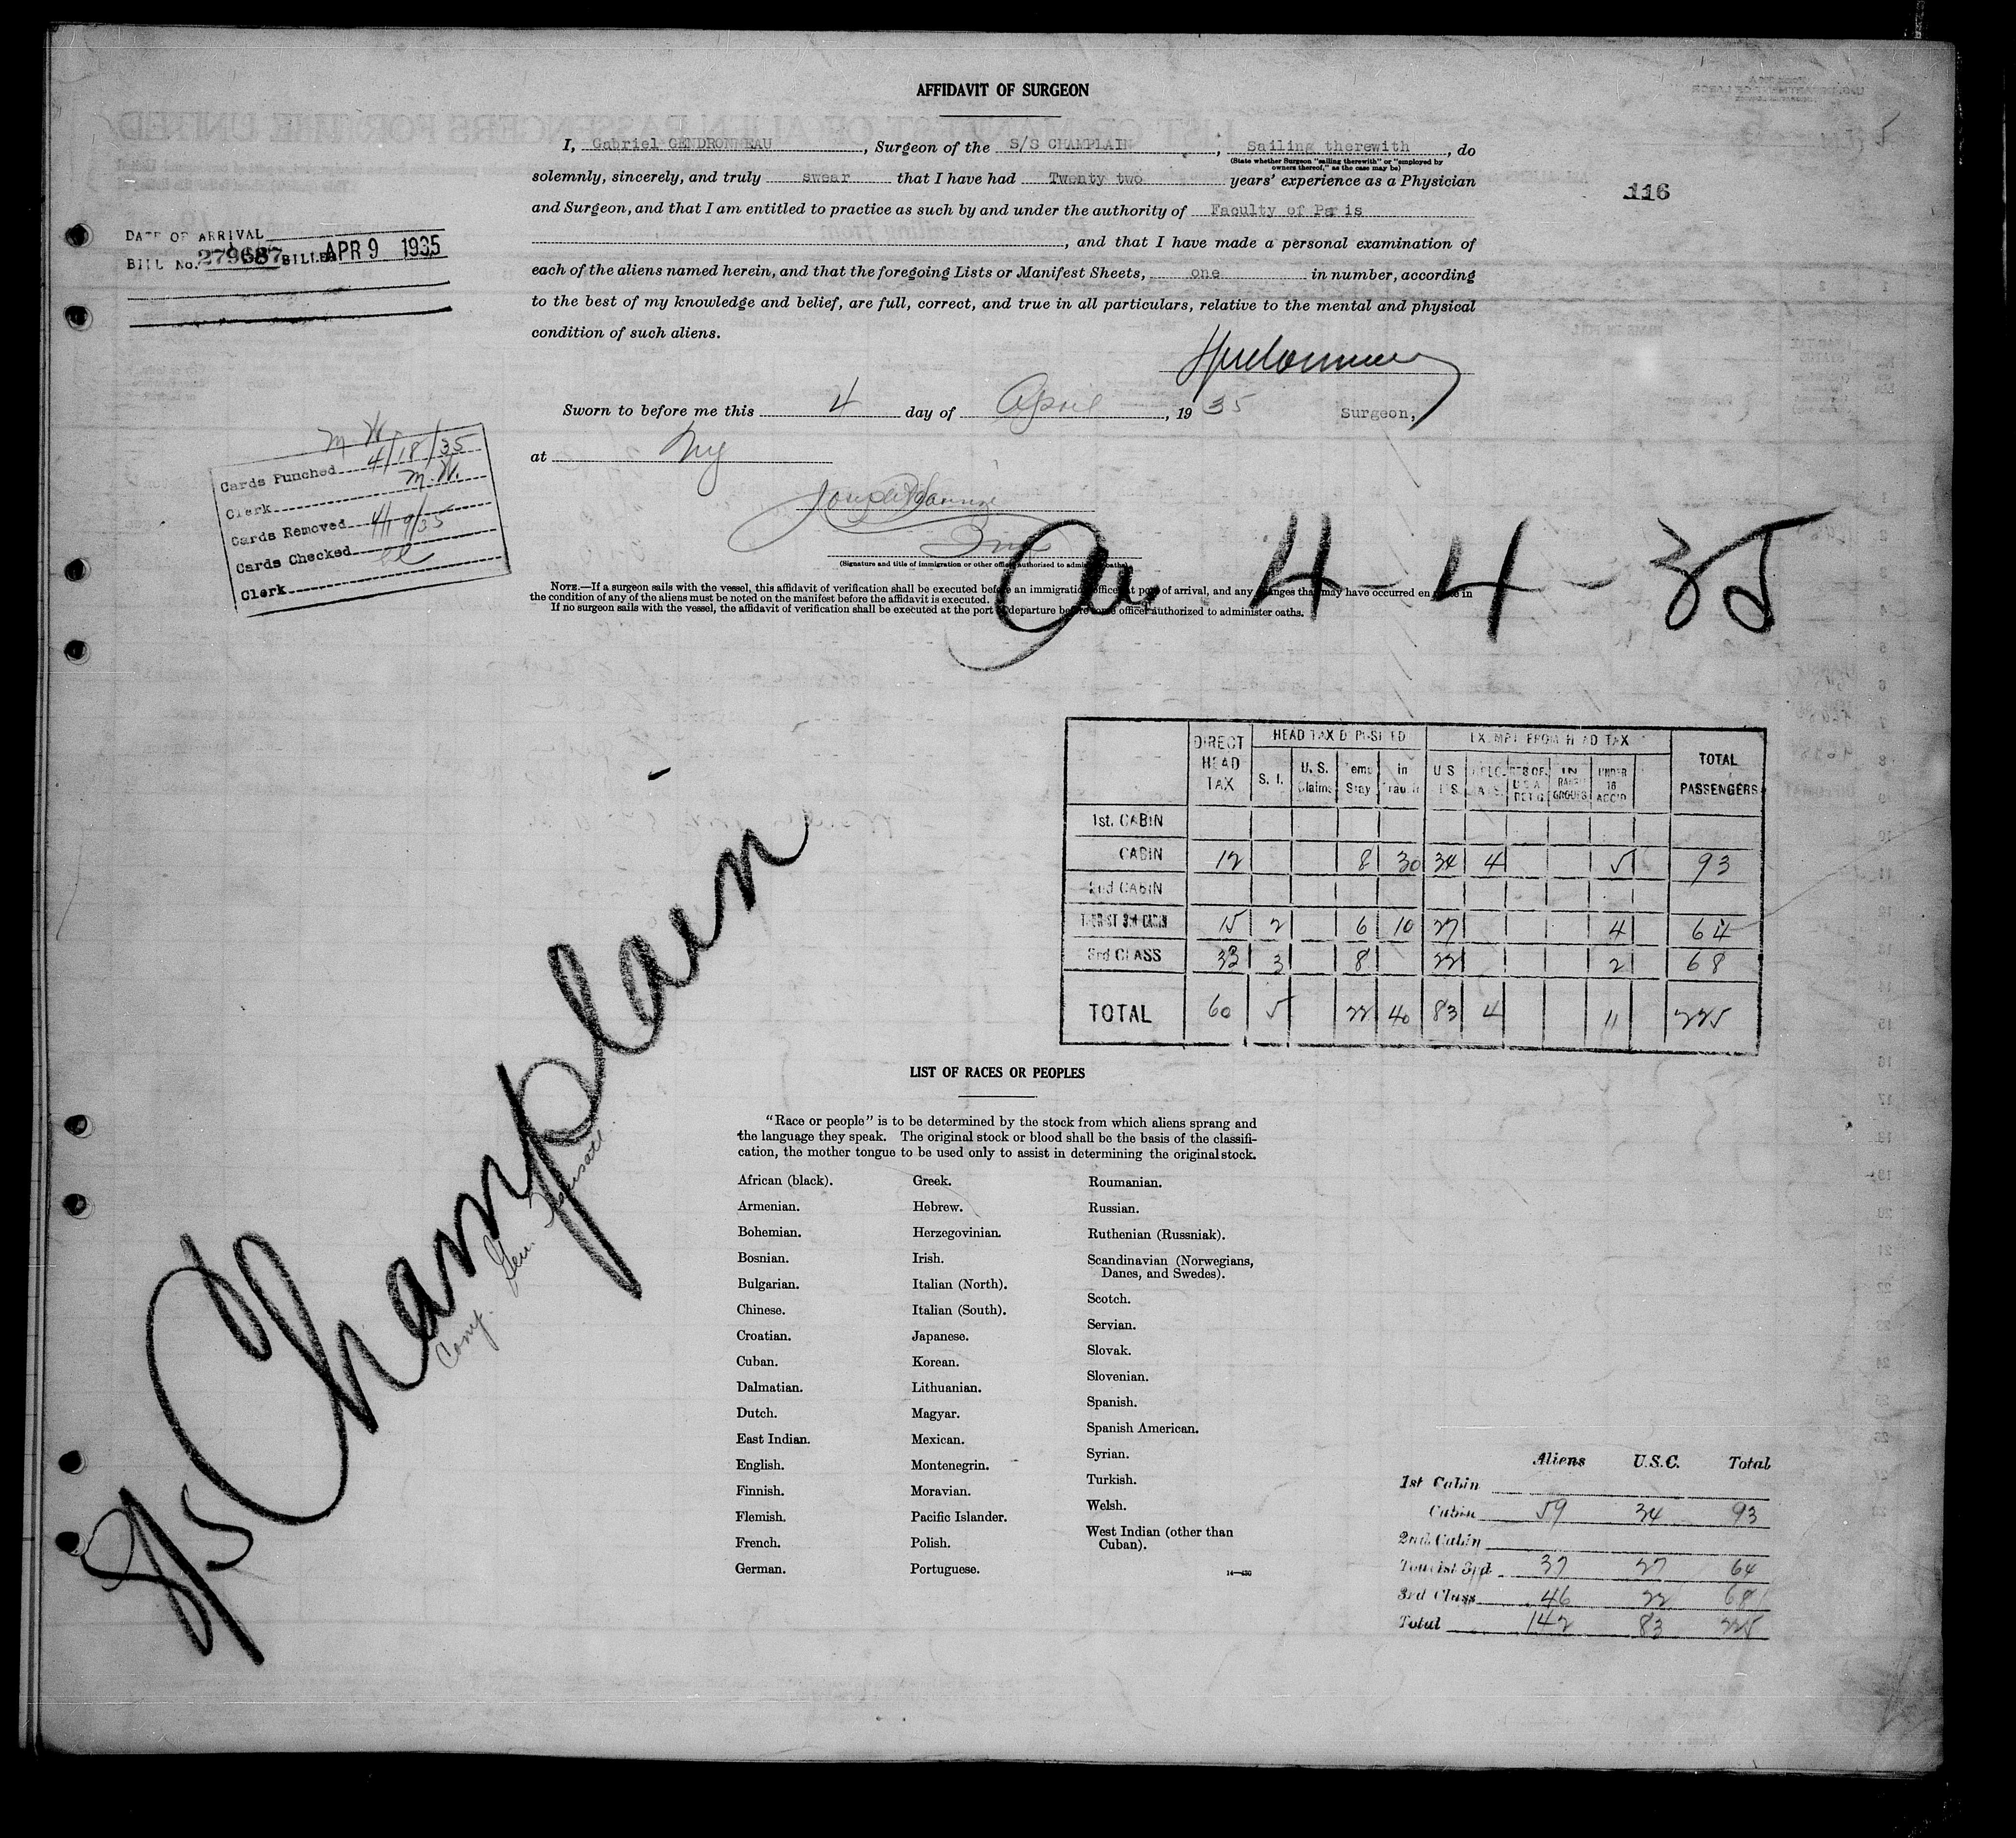 AFFIDAVIT OF SURGEON
I, Gabriel GENDRONNEAU, Surgeon of the S/S CHAMPLAIN, Sailing therewith, do
(State whether Surgeon "sailing therewith" or "employed by
owners thereof," as the case may be)
solemnly, sincerely, and truly swear that I have had Twenty two years' experience as a Physician
and Surgeon, and that I am entitled to practice as such by and under the authority of Faculty of Paris
, and that I have made a personal examination of
each of the aliens named herein, and that the foregoing Lists or Manifest Sheets, one in number, according
to the best of my knowledge and belief, are full, correct, and true in all particulars, relative to the mental and physical
condition of such aliens.
116
DATE OF ARRIVAL
BILL No. 279687 BILLED APR 9 1935
Sworn to before me this 4 day of April, 1935 Surgeon,
at NY
(Signature and title of immigration or other officer authorized to administer oaths)
M.W.
Cards Punched 4/18/35
Clerk M.W.
Cards Removed 4/19/35
Cards Checked
Clerk
4-4-35
NOTE.—If a surgeon sails with the vessel, this affidavit of verification shall be executed before an immigration officer at port of arrival, and any changes that may have occurred en route in
the condition of any of the aliens must be noted on the manifest before the affidavit is executed.
If no surgeon sails with the vessel, the affidavit of verification shall be executed at the port of departure before some officer authorized to administer oaths.
DIRECT HEAD TAX HEAD TAX DEPOSITED EXEMPT FROM HEAD TAX TOTAL PASSENGERS
S. I. U. S. Claims Temp Stay In Transit U S UNDER 16 ACC'D
1st. CABIN
CABIN 12 8 30 34 4 5 93
2nd CABIN
TOURIST 3rd CABIN 15 2 6 10 27 4 64
3rd CLASS 33 3 8 22 2 68
TOTAL 60 5 22 40 83 4 11 225
S/S Champlain
Comp. Gen.
LIST OF RACES OR PEOPLES
"Race or people" is to be determined by the stock from which aliens sprang and
the language they speak. The original stock or blood shall be the basis of the classifi-
cation, the mother tongue to be used only to assist in determining the original stock.
African (black).
Armenian.
Bohemian.
Bosnian.
Bulgarian.
Chinese.
Croatian.
Cuban.
Dalmatian.
Dutch.
East Indian.
English.
Finnish.
Flemish.
French.
German.
Greek.
Hebrew.
Herzegovinian.
Irish.
Italian (North).
Italian (South).
Japanese.
Korean.
Lithuanian.
Magyar.
Mexican.
Montenegrin.
Moravian.
Pacific Islander.
Polish.
Portuguese.
Roumanian.
Russian.
Ruthenian (Russniak).
Scandinavian (Norwegians,
Danes, and Swedes).
Scotch.
Servian.
Slovak.
Slovenian.
Spanish.
Spanish American.
Syrian.
Turkish.
Welsh.
West Indian (other than
Cuban).
Aliens U.S.C. Total
1st Cabin
Cabin 59 34 93
2nd Cabin
Tourist 3rd 37 27 64
3rd Class 46 22 68
Total 142 83 225